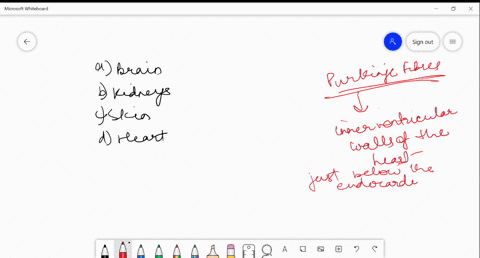 Microsoft Whiteboard
Sign out
a) Brain
b) Kidneys
c) Skin
d) Heart
Purkinje Fibres
inner ventricular
walls of the
heart
just below the
endocardi